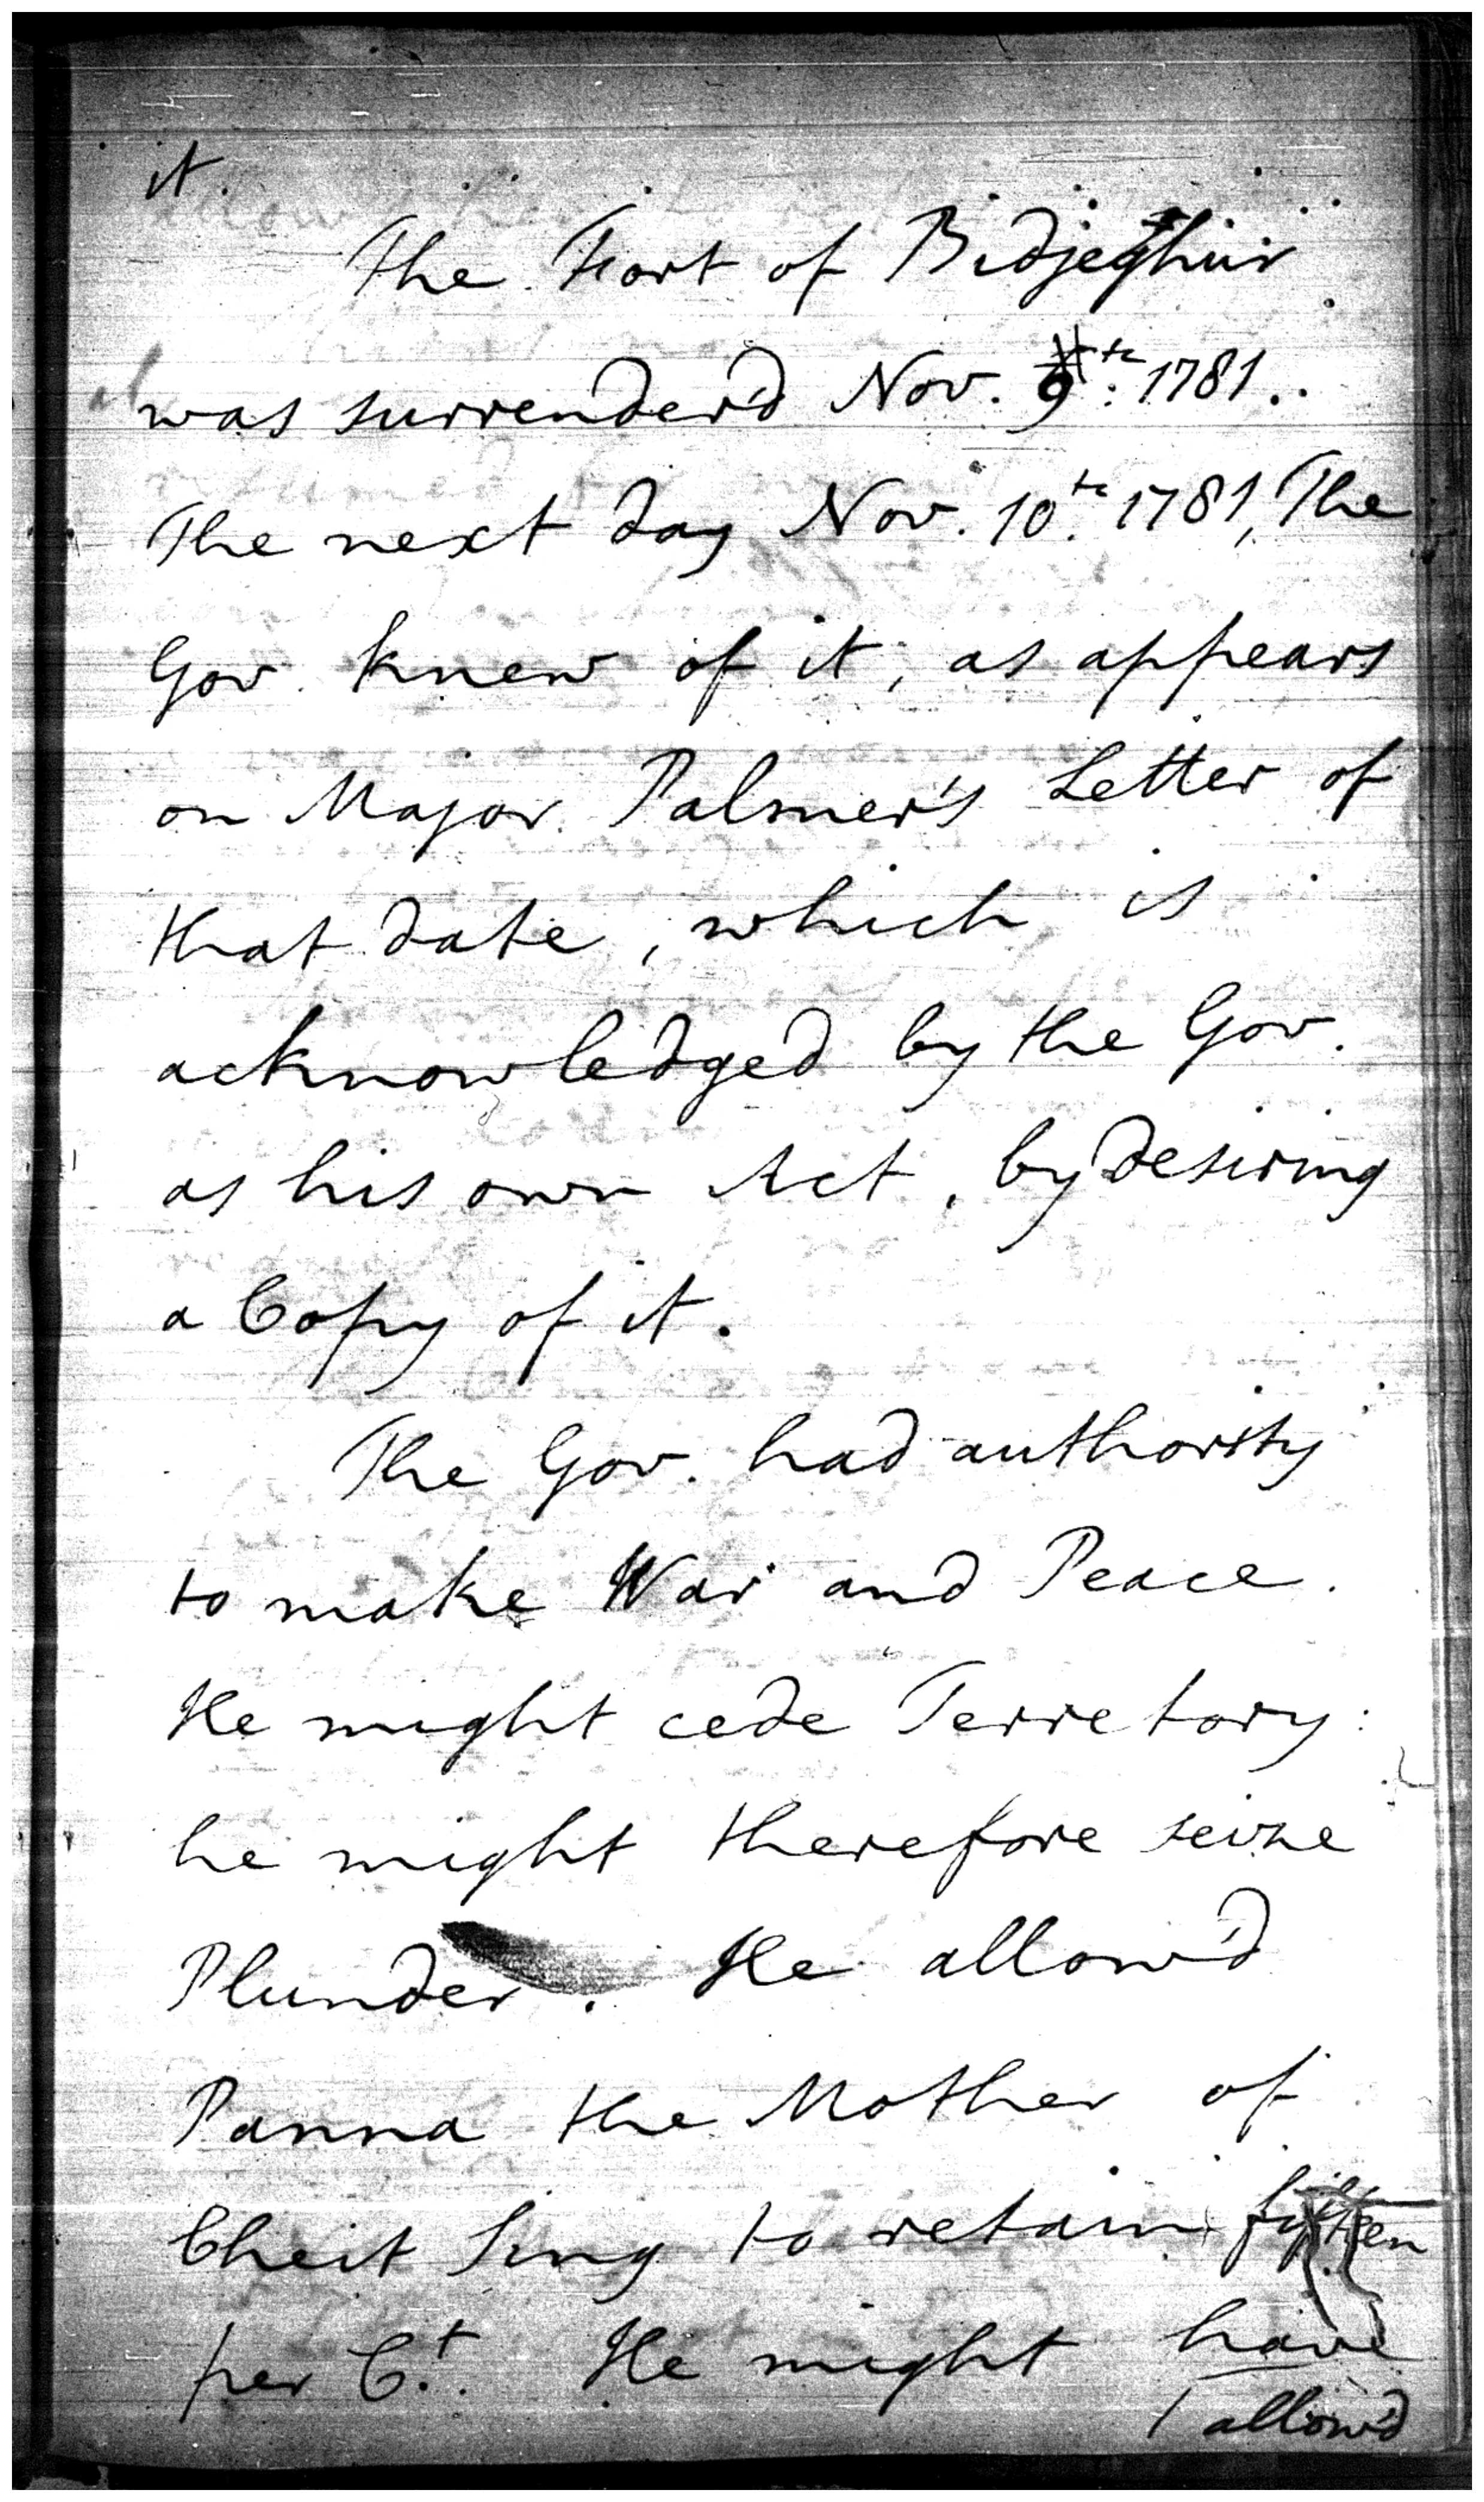 it.
The Fort of Bidjeghur
was surrender'd Nov. 9th. 1781.
The next day Nov. 10th. 1781, The
Gov. knew of it, as appears
on Major Palmer's Letter of
that date, which is
acknowledged by the Gov.
as his own Act, by desiring
a Copy of it.
The Gov. had authority
to make War and Peace.
He might cede Terretory:
he might therefore seize
Plunder. He allow'd
Panna the Mother of
Cheit Sing to retain fifteen
per Ct. He might have
allow'd